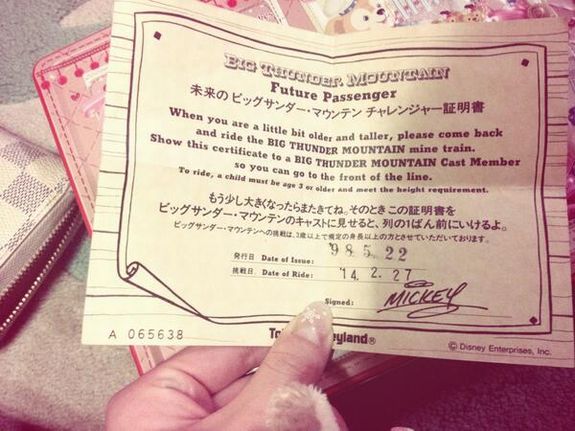 BIG THUNDER MOUNTAIN
Future Passenger
未来の ビッグサンダー・マウンテン チャレンジャー証明書
When you are a little bit older and taller, please come back
and ride the BIG THUNDER MOUNTAIN mine train.
Show this certificate to a BIG THUNDER MOUNTAIN Cast Member
so you can go to the front of the line.
To ride, a child must be age 3 or older and meet the height requirement.
もう少し大きくなったらまたきてね。そのときこの証明書を
ビッグサンダー・マウンテンのキャストに見せると、列の1ばん前にいけるよ。
ビッグサンダー・マウンテンへの挑戦は、3歳以上で規定の身長以上の方とさせていただいております。
発行日 Date of Issue: '98 5. 22
挑戦日 Date of Ride: '14. 2. 27
Signed: MICKEY
A 065638
© Disney Enterprises, Inc.